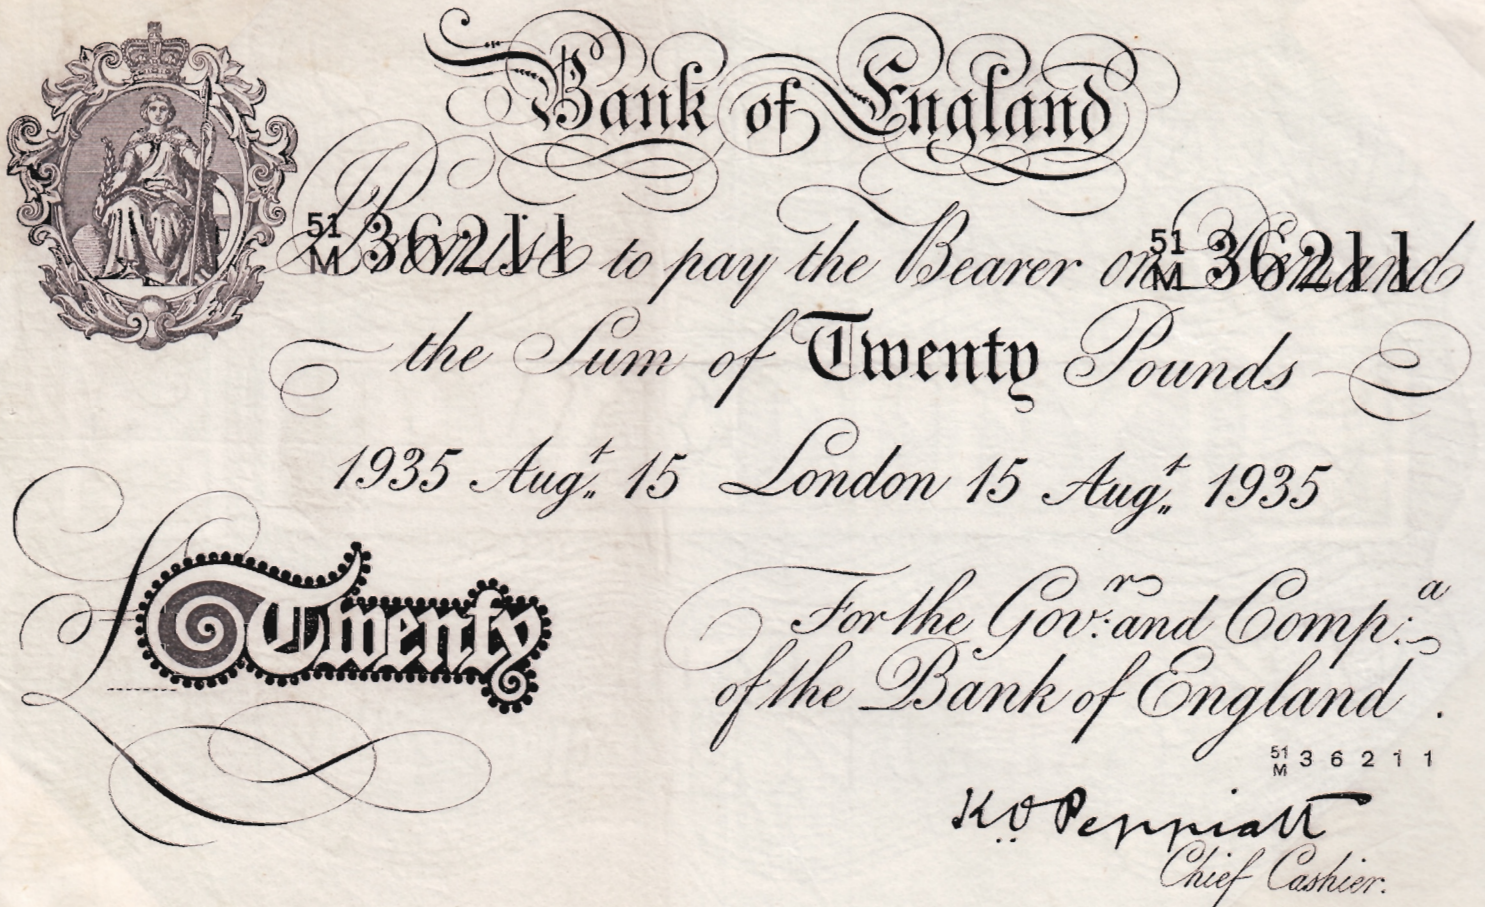 Bank of England
51
M 36211 51
M 36211
I Promise to pay the Bearer on Demand
the Sum of Twenty Pounds
1935 Augt. 15 London 15 Augt. 1935
For the Govr. and Compa.
£Twenty
of the Bank of England.
51
M 36211
K O Peppiatt
Chief Cashier.